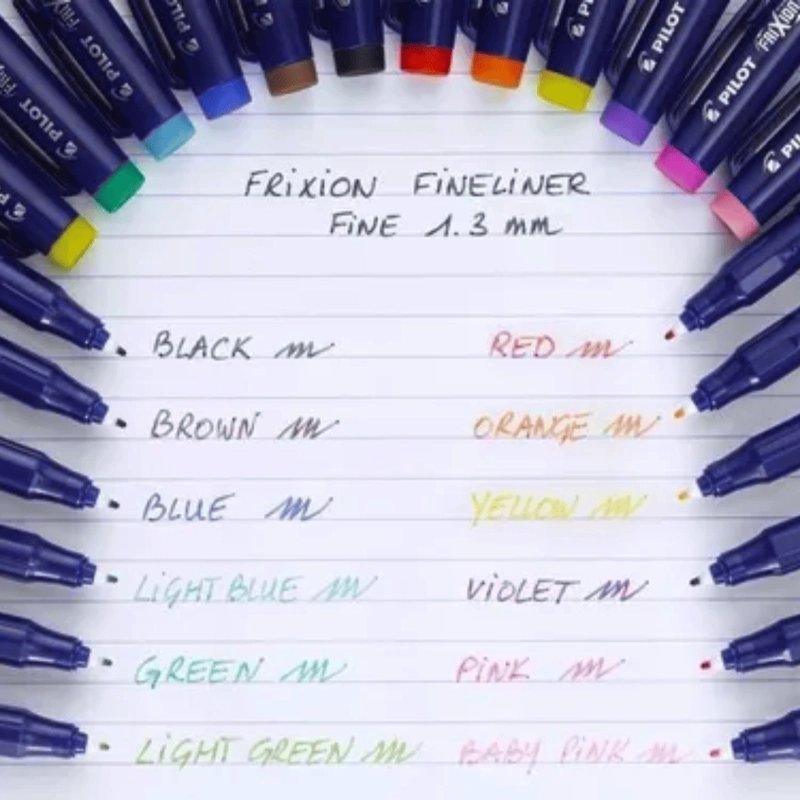 PILOT
PILOT
PILOT
PILOT FriXion
FRIXION FINELINER
FINE 1.3 mm
BLACK
RED
BROWN
ORANGE
BLUE
YELLOW
LIGHT BLUE
VIOLET
GREEN
PINK
LIGHT GREEN
BABY PINK